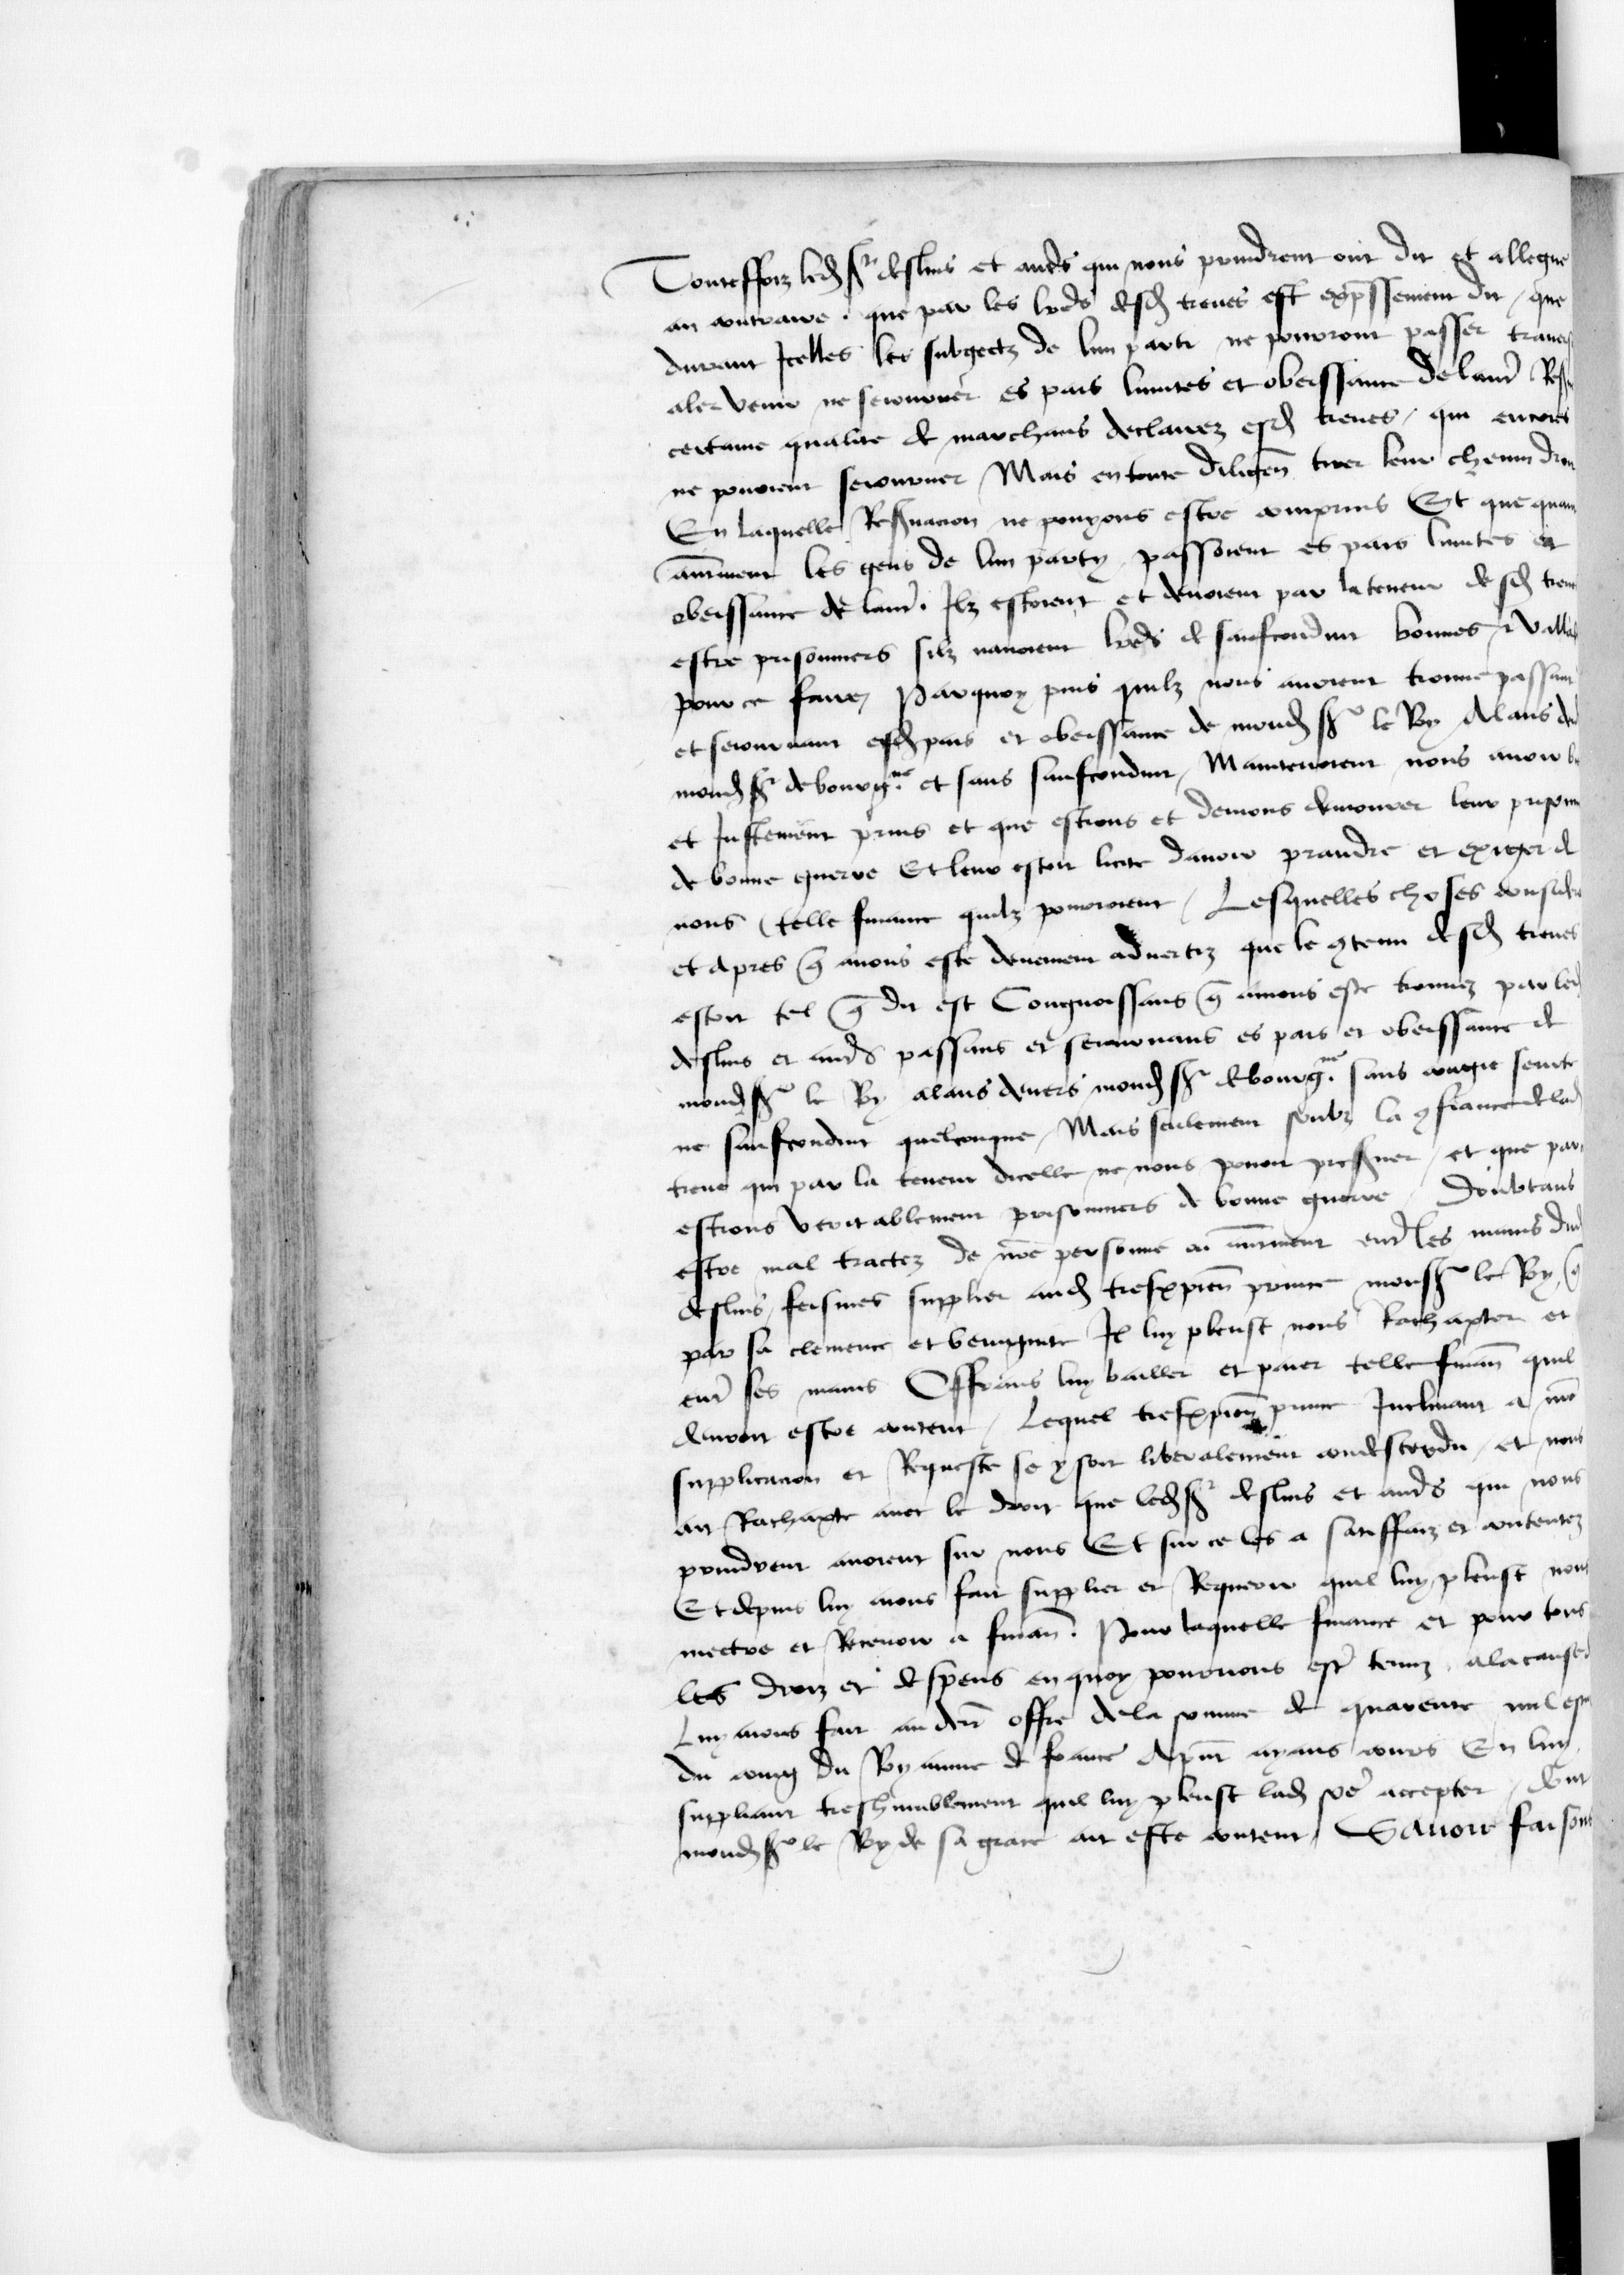 Touteffoiz led sr deslins et auts qui nous prindrent ont dit et allegue
au contraire. que par les lres desd treues est expssement dit / que
durant Icelles les subgectz de lun parti ne pourront passer
aler venir ne seiourner es pais limites et obeissance de laut
certaine qualite de marchans declairez esd treues / qui encores
ne pouoient seiourner Mais en toute diligen tirer leur chemin
En laquelle Resvacion ne pouyons estre comprins Et que
aultrement les gens de lun party passoient es pais limites et
obeissance de laut. Ilz estoient et deuoient par la teneur desd
estre prisonniers silz nauoient lres de saufconduit bonnes et
pour ce faire Parquoy puis quilz nous auoient trouue passant
et seiournant esd pais et obeissance de mond sr le Roy Alans
mond sr de bourgne et sans saufconduit / Maintenoient nous auoir
et Iustement prins et que estions et deuions demourer leur
de bonne guerre Et leur estoit licite dauoir prandre et exiger de
nous telle finance quilz pourroient / Lesquelles choses
et apres q auons este deuement aduertiz que le 9tenu desd treues
estoit tel q dit est Congnoissans q auions este trouuez par led
deslins et auts passans et seiournans es pais et obeissance de
mond sr le Roy alans deuers mond sr de bourgne sans congie seurte
ne saufconduit quelconque / Mais seulement soubz la 9fiance de lad
treue qui par la teneur dicelle ne nous pouoit preseruer / et que
estions veritablement prisonniers de bonne guerre / Doubtans
estre mal tractez de nre personne ou aultrement ent les mains
deslins / feismes supplier aud tresxpien prince monsr le Roy / q
par sa clemence et benignite Il luy pleust nous Rachapter et
ent ses mains Offrans luy bailler et paier telle finan quil
deuroit estre content / Lequel tresxpien prince Inclinant a nre
supplicacion et Requeste se y soit liberalement condescendu / et nous
ait Rachapte auec le droit que led sr deslins et auts qui nous
prindrent auoient sur nous Et sur ce les a satisffaiz et contentez
Et depuis luy auons fait supplier et Requerir quil luy pleust nous
mectre et Receuoir a finan. Pour laquelle finance et pour tous
les droiz et despens en quoy pourrions est tenuz a la cause
Luy auons fait au derr offre de la somme de quarente mil
du coing du Royaume de france Apnt ayans cours En luy
suppliant treshumblement quil luy pleust lad offre accepter / dont
mond sr le Roy de sa grace ait este content / Sauoir faisons